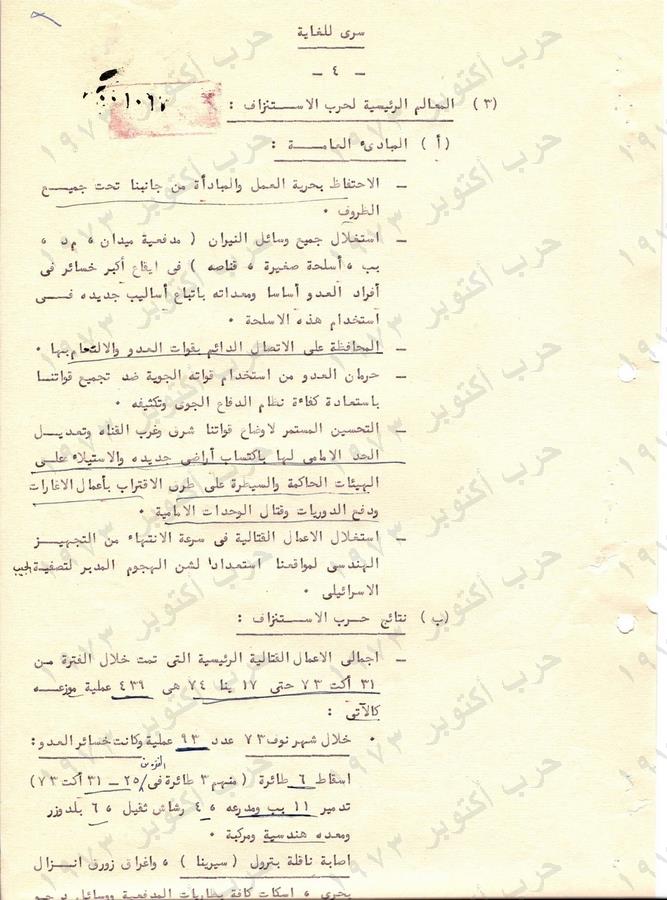 سرى للغاية
- ٤ -
(٣) المعالم الرئيسية لحرب الاستنزاف :
(أ) المبادئ العامة :
- الاحتفاظ بحرية العمل والمبادأة من جانبنا تحت جميع
الظروف ٠
- استغلال جميع وسائل النيران ( مدفعية ميدان ، م د ،
بب ، أسلحة صغيرة ، قناصه ) فى ايقاع أكبر خسائر فى
أفراد العدو أساسا ومعداته باتباع أساليب جديده فى
استخدام هذه الاسلحة ٠
- المحافظة على الاتصال الدائم بقوات العدو والالتحام بها ٠
- حرمان العدو من استخدام قواته الجوية ضد تجميع قواتنا
باستعادة كفاءة نظام الدفاع الجوى وتكثيفه ٠
- التحسين المستمر لاوضاع قواتنا شرق وغرب القناه وتعديل
الحد الامامى لها باكتساب أراضى جديده والاستيلاء على
الهيئات الحاكمة والسيطرة على طرق الاقتراب بأعمال الاغارات
ودفع الدوريات وقتال الوحدات الامامية ٠
- استغلال الاعمال القتالية فى سرعة الانتهاء من التجهيز
الهندسى لمواقعنا استعدادا لشن الهجوم المدبر لتصفية الجيب
الاسرائيلى ٠
(ب) نتائج حرب الاستنزاف :
- اجمالى الاعمال القتالية الرئيسية التى تمت خلال الفترة من
٣١ أكت ٧٣ حتى ١٧ ينا ٧٤ هى ٤٣٩ عملية موزعه
كالآتى :
٠ خلال شهر نوف ٧٣ عدد ٩٣ عملية وكانت خسائر العدو :
اسقاط ٦ طائرة ( منهم ٣ طائرة فى الفترة من ٢٥ - ٣١ أكت ٧٣ )
تدمير ١١ بب ومدرعه ، ٤ رشاش ثقيل ، ٦ بلدوزر
ومعده هندسية ومركبة ٠
اصابة ناقلة بترول ( سيرينا ) ، واغراق زورق انزال
بحرى ، اسكات كافة بطاريات المدفعية ووسائل
حرب أكتوبر ١٩٧٣